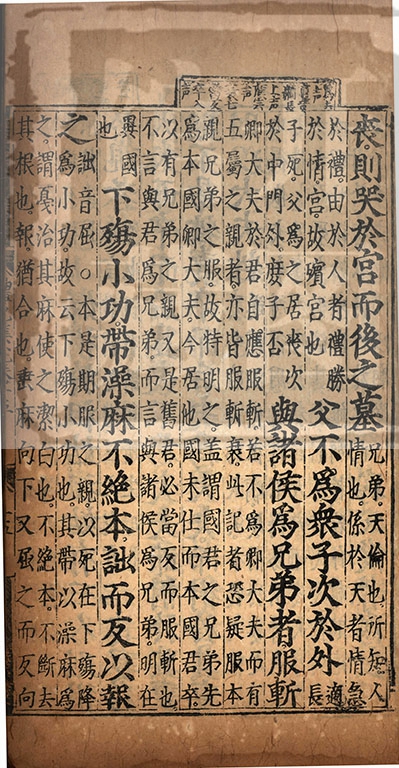 喪。則哭於宮而後之墓
兄弟。天倫也。所知。人
情也。係於天者情急
於禮。由於人者禮勝
於情。宮。故殯宮也
父不爲衆子次於外
適
長
子死父爲之居喪次
於中門外。庶子否
與諸侯爲兄弟者服斬
卿大夫於君自應服斬。若不爲卿大夫而有
五屬之親者。亦皆服斬衰。此記者恐疑服本
親兄弟之服。故特明之。蓋謂國君之兄弟先
爲本國卿大夫。今居他國未仕而本國君卒。
以有兄弟之親。又是舊君。必當反而服斬也
不言與君爲兄弟。而言與諸侯爲兄弟。明在
異國
也
下殤小功。帶澡麻不絕本。詘而反以報
之
詘音屈○本是期服之親。以死在下殤降
爲小功。故云下殤小功也。其帶以澡麻爲
之。謂戛治其麻使之潔白也。不絕本。不斷去
其根也。報猶合也。垂麻向下又屈之而反向